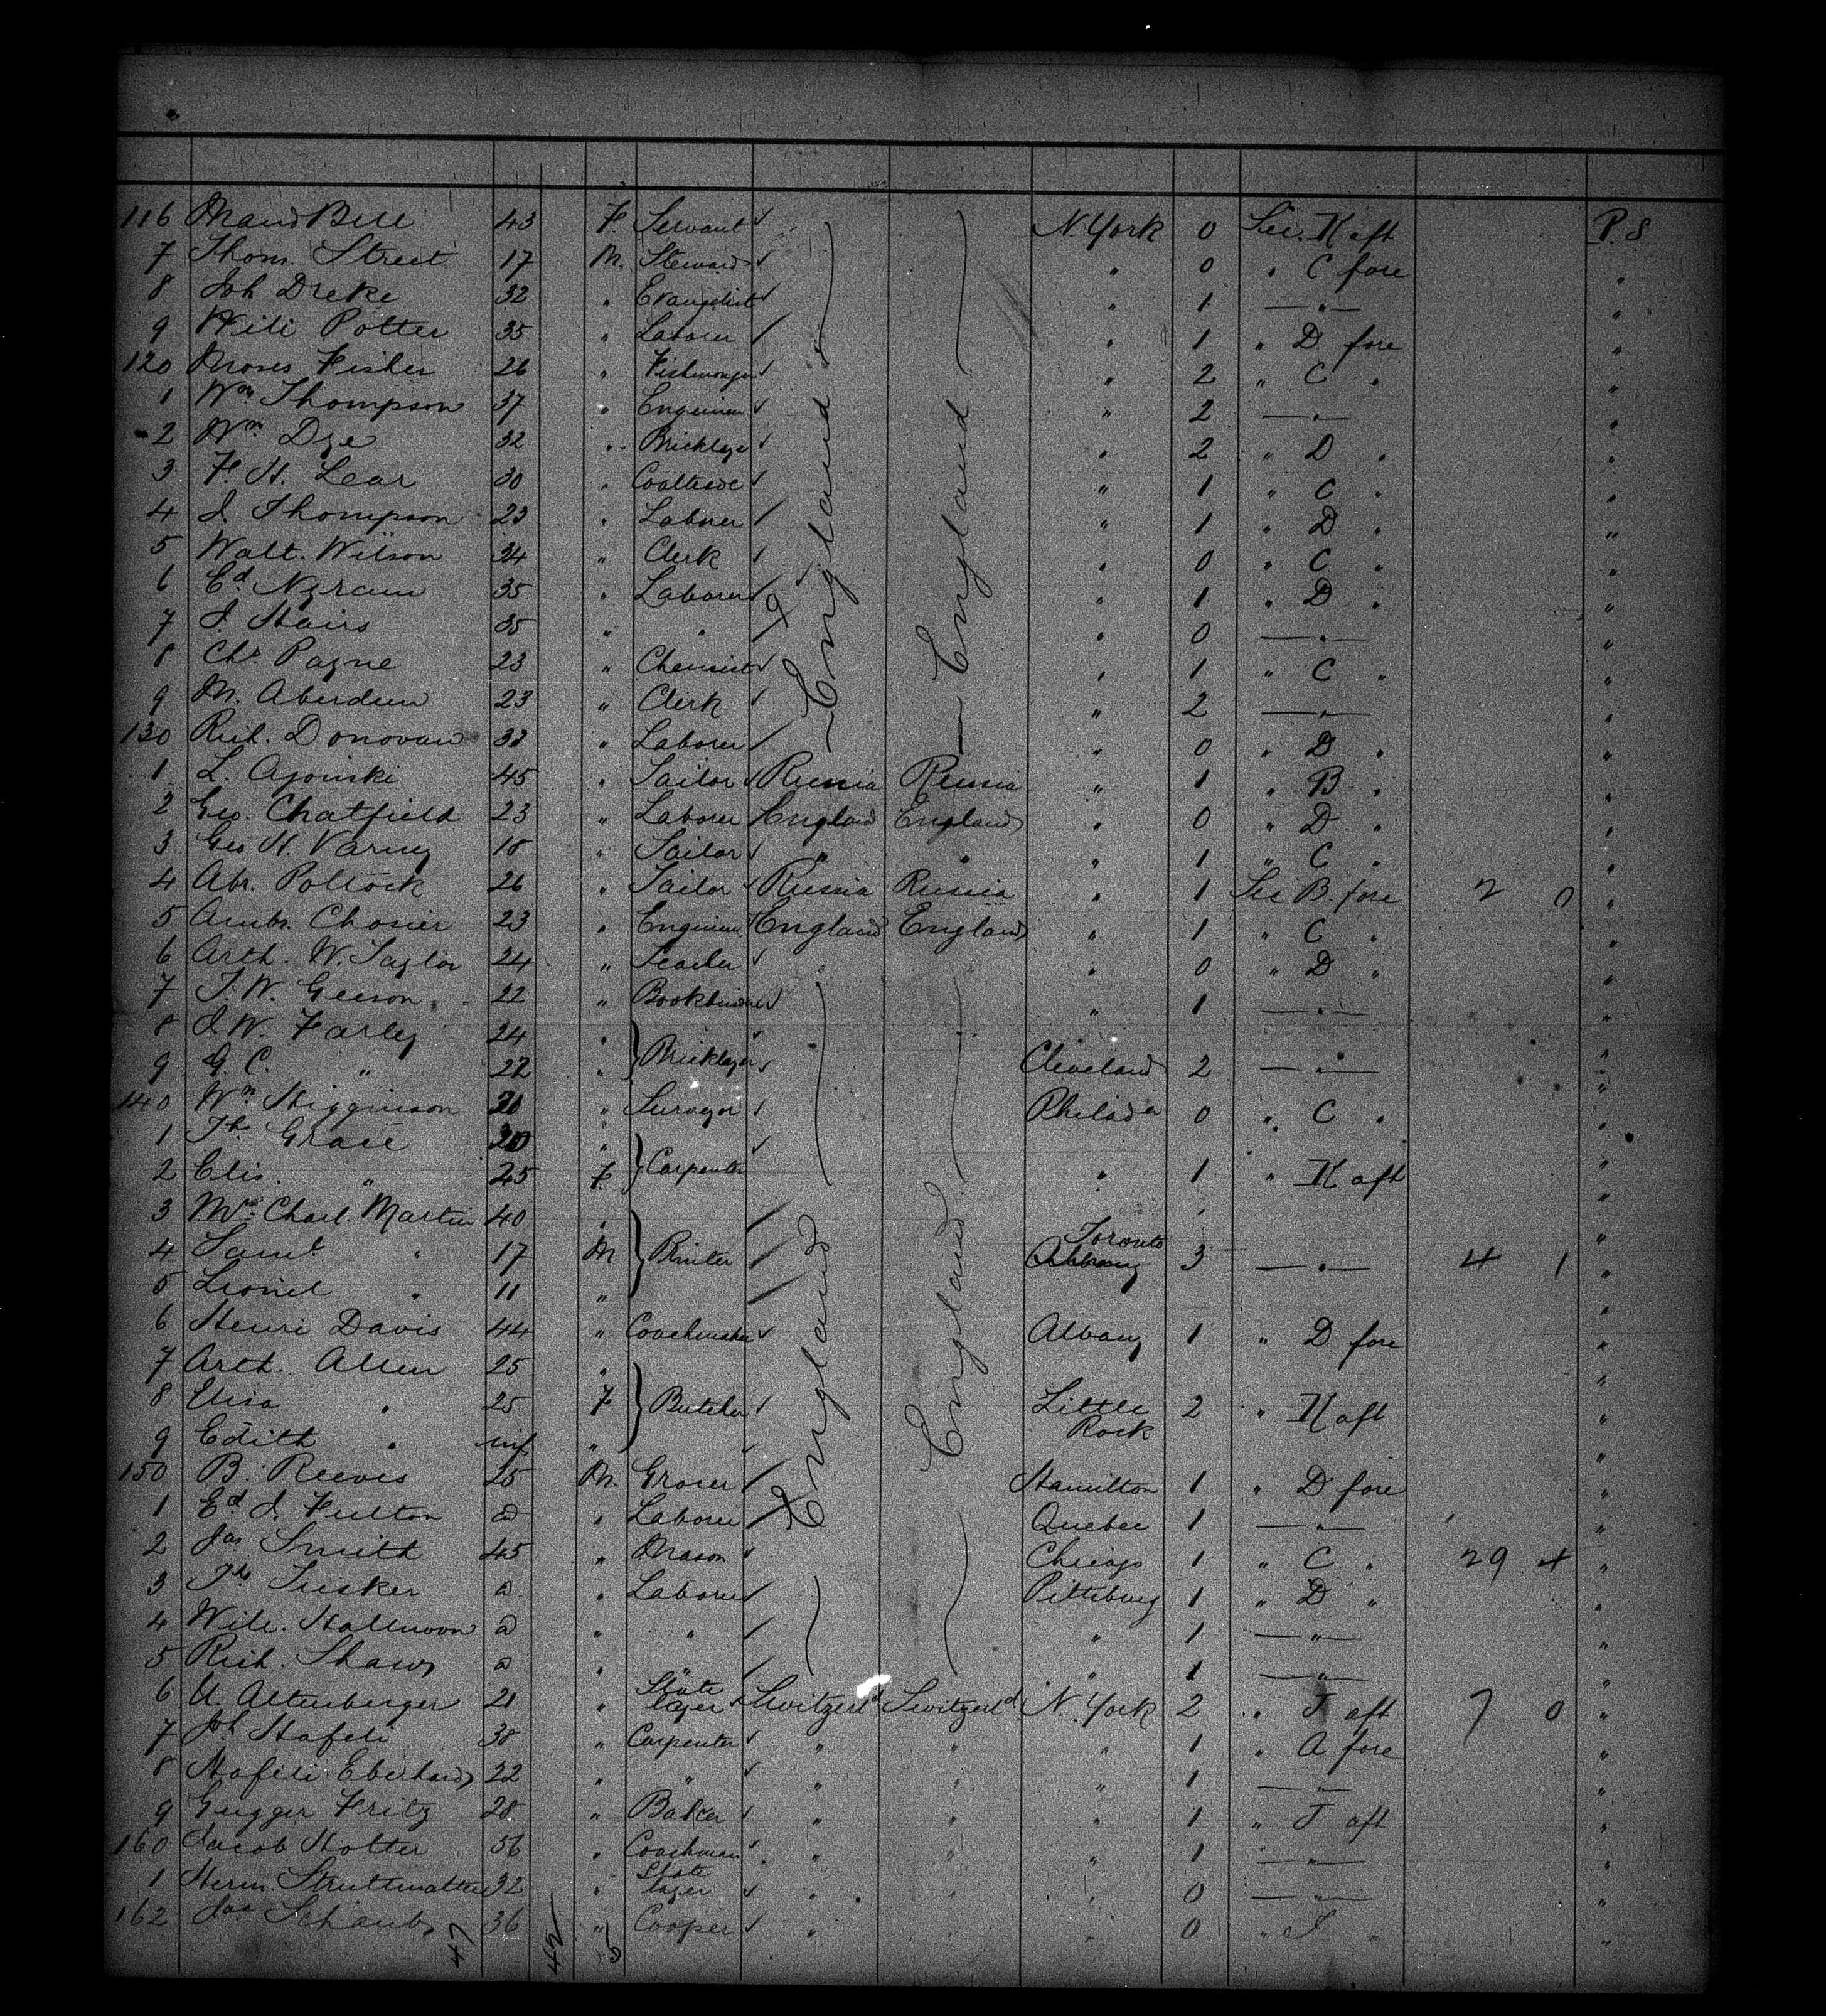 116 Maud Bell 43 F. Servant ✓ England England N. York 0 Sec. H aft P.S
7 Thom. Street 17 M. Steward ✓ " 0 " C fore "
8 Joh Dreke 32 " Evangelist ✓ " 1 — " — "
9 Will Potter 35 " Laborer / " 1 " D fore "
120 Moses Fisher 26 " Fishmonger ✓ " 2 " C " "
1 Wm Thompson 37 " " 2 — " — "
2 Wm Dye 32 " " 2 " D " "
3 F. H. Lear 30 " " 1 " C " "
4 J Thompson 23 " Laborer / " 1 " D " "
5 Walt. Wilson 34 " Clerk / " 0 " C " "
6 Ed 35 " Laborer / " 1 " D " "
7 J. Stairs 35 " " / " 0 — " — "
8 Chs Payne 23 " Chemist ✓ " 1 " C " "
9 M. Aberdeen 23 " Clerk ✓ " 2 — " — "
130 Rich. Donovan 33 " Laborer / " 0 " D " "
1 L. 45 " Tailor ✓ Russia Russia " 1 " B " "
2 Geo. Chatfield 23 " Laborer / England England " 0 " D " "
3 Geo H. Varney 18 " Sailor ✓ " " " 1 " C " "
4 Abr. Pollock 26 " Tailor ✓ Russia Russia " 1 Sec B. fore 2 0 "
5 Ambr. Chosier 23 " England England " 1 " C " "
6 Arth. W. Taylor 24 " ✓ " " " 0 " D " "
7 T. W. Geeson 22 " Bookbinder ✓ " 1 — " — "
8 J. W. Farley 24 " "
9 G. C. " 22 " Bricklayer ✓ Cleveland 2 — " — "
140 Wm Higginson 21 " Surveyor / Philada 0 " C " "
1 Th Grace 20 " ✓ "
2 Elis. " 25 F. Carpenter " 1 " H aft "
3 Mrs Charl. Martin 40 " / England England Toronto "
4 Saml " 17 M Printer / 3 — " — 4 1 "
5 Lionel " 11 " / "
6 Henri Davis 44 " Coachmaker ✓ Albany 1 " D fore "
7 Arth. Allen 25 " "
8 Elisa " 25 F Butcher / Little Rock 2 " H aft "
9 Edith " inf " "
150 B. Reeves 25 M. Grocer / Hamilton 1 " D fore "
1 Ed J. Fulton a " Laborer / Quebec 1 — " — "
2 Jas Smith 45 " Mason ✓ Chicago 1 " C " 29 4 "
3 Ths Tusker a " Laborer / Pittsburg 1 " D " "
4 Will. a " " / " 1 — " — "
5 Rich. Shaw a " " / " 1 — " — "
6 U. Altenberger 21 " Slate layer ✓ Switzerld Switzerld N. York 2 " J aft 7 0 "
7 Joh Hafeli 38 " Carpenter ✓ " " " 1 " A fore "
8 Hafeli Eberhard 22 " " ✓ " " " 1 — " — "
9 Gugger Fritz 28 " Baker ✓ " " " 1 " J aft "
160 Jacob Hotter 56 " Coachman ✓ " " " 1 — " — "
1 Herm. Struttmatter 32 " Slate layer ✓ " " " 0 — " — "
162 Jac Schaub 36 " Cooper ✓ " " " 0 " J " "
47 42 5